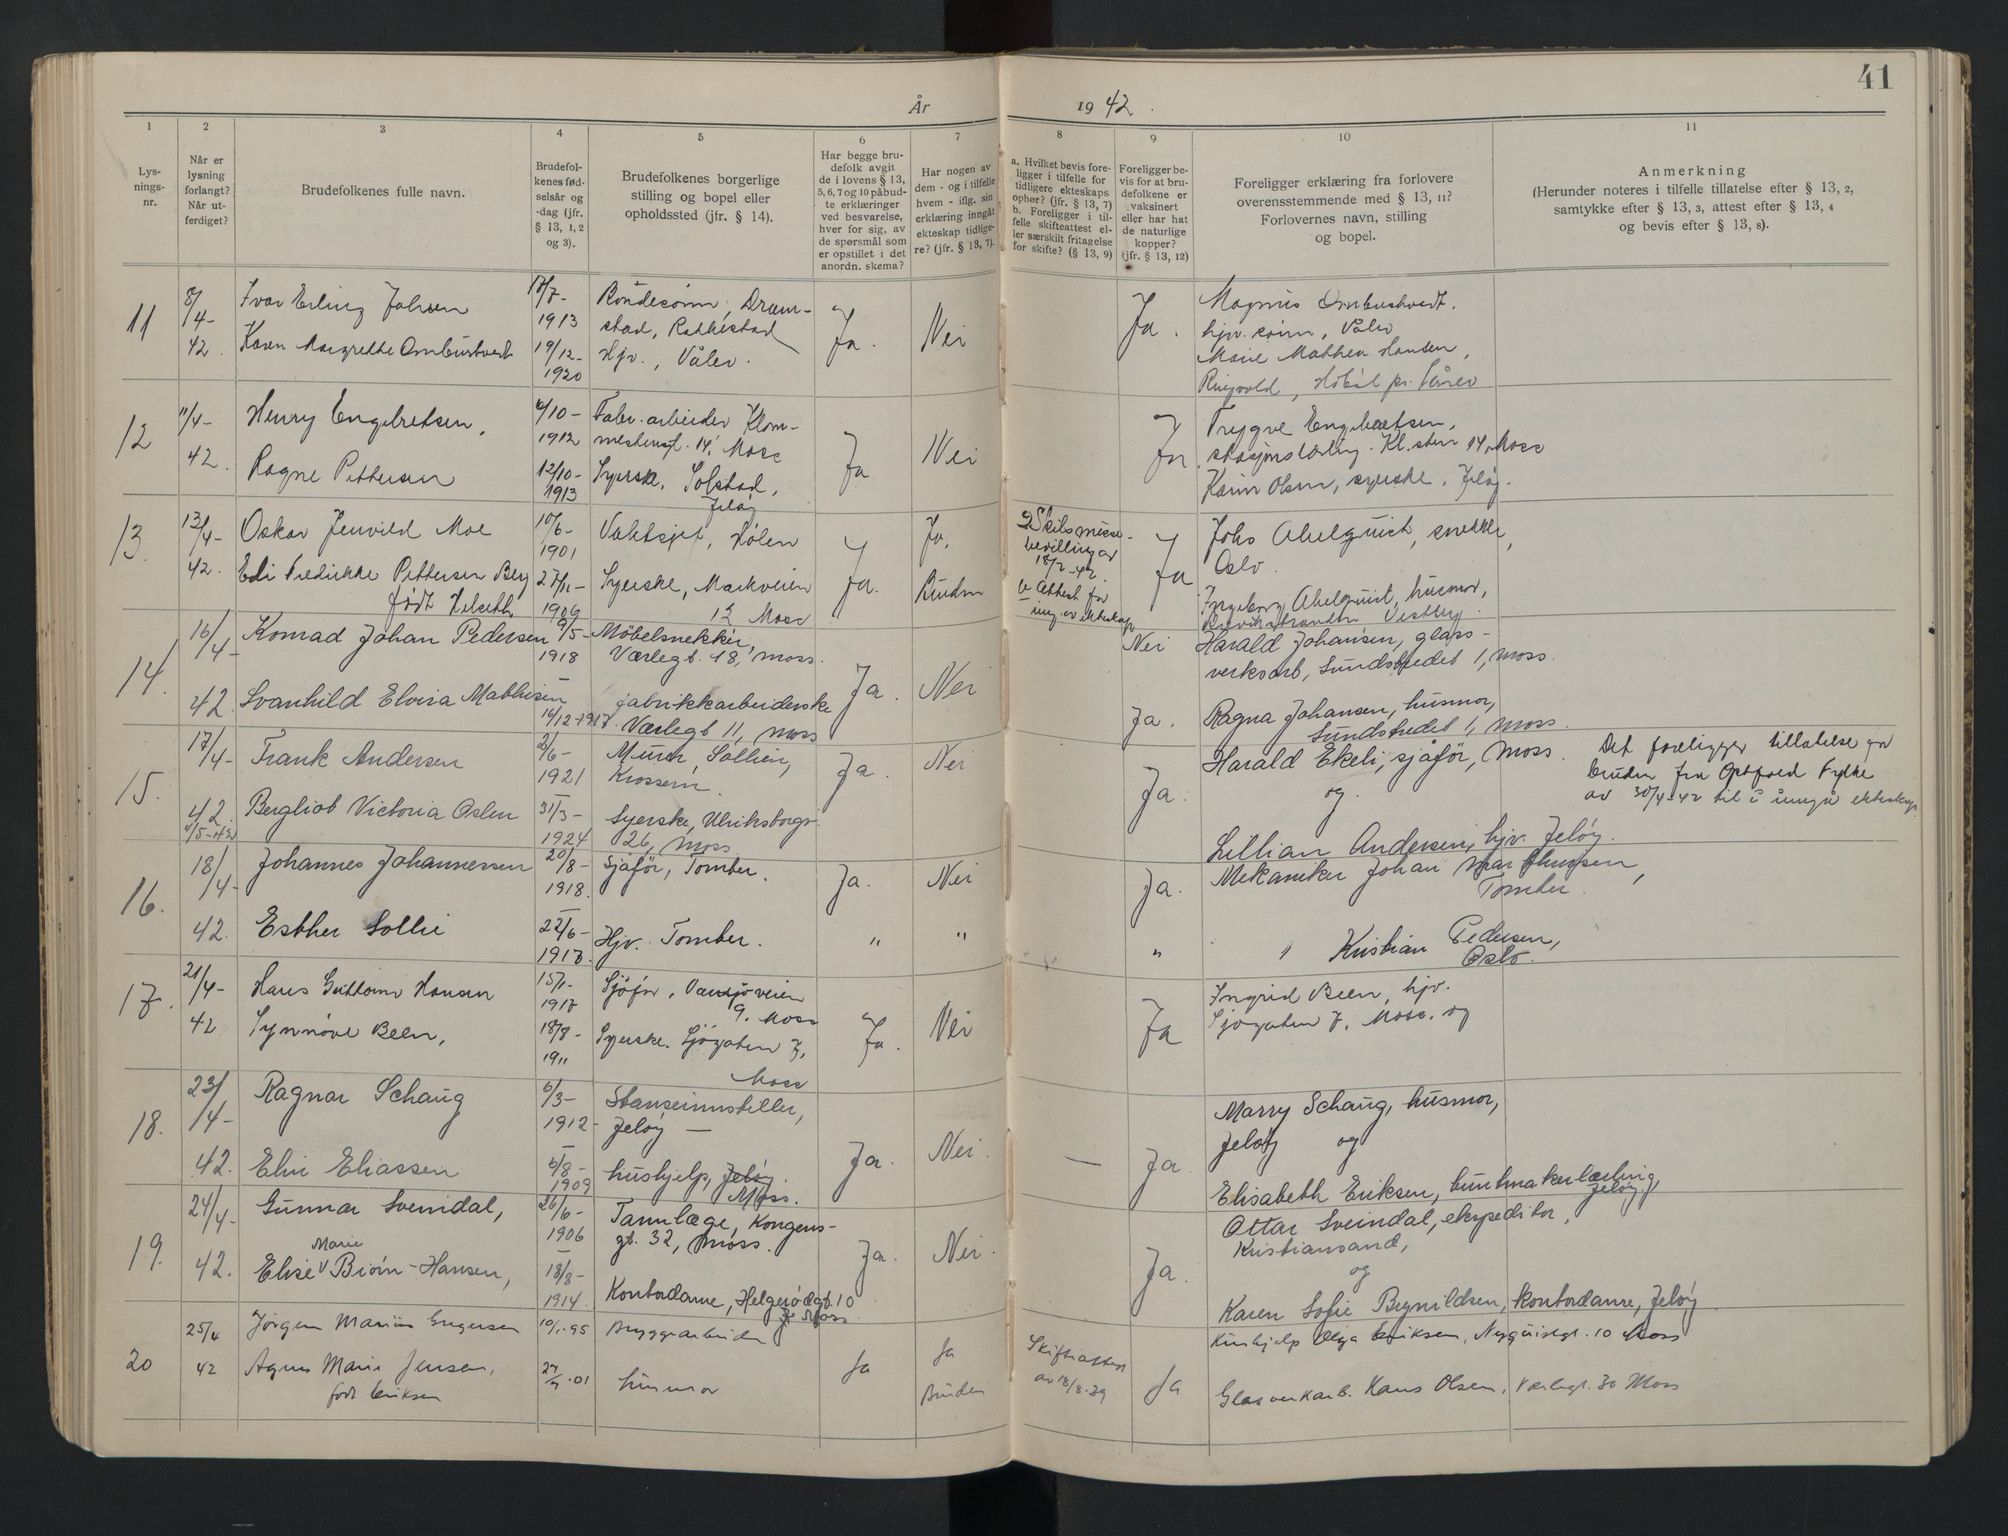 41
År 1942.
1 2 3 4 5 6 7 8 9 10 11
Lys-
nings-
nr.
Når er
lysning
forlangt?
Når ut-
ferdiget?
Brudefolkenes fulle navn.
Brudefol-
kenes fød-
selsår og
-dag (jfr.
§ 13, 1, 2
og 3).
Brudefolkenes borgerlige
stilling og bopel eller
opholdssted (jfr. § 14).
Har begge bru-
defolk avgit
de i lovens § 13,
5, 6, 7 og 10 påbud-
te erklæringer
ved besvarelse,
hver for sig, av
de spørsmål som
er opstillet i det
anordn. skema?
Har nogen av
dem - og i tilfelle
hvem - iflg. sin
erklæring inngått
ekteskap tidlige-
re? (jfr. § 13, 7).
a. Hvilket bevis fore-
ligger i tilfelle for
tidligere ekteskaps
ophør? (jfr. § 13, 7)
b. Foreligger i til-
felle skifteattest el-
ler særskilt fritagelse
for skifte? (§ 13, 9)
Foreligger be-
vis for at bru-
defolkene er
vaksinert
eller har hat
de naturlige
kopper?
(jfr. § 13, 12)
Foreligger erklæring fra forlovere
overensstemmende med § 13, 11?
Forlovernes navn, stilling
og bopel.
Anmerkning
(Herunder noteres i tilfelle tillatelse efter § 13, 2,
samtykke efter § 13, 3, attest efter § 13, 4
og bevis efter § 13, 8).
11
8/4-
42.
Ivar Erling Johsen
Karen Margrethe Ombustvedt
18/7-
1913
19/12-
1920
Bondesönn, Dram-
stad, Rakkestad
Hjv., Våler.
Ja.
Nei
Ja.
Magnus Ombustvedt.
hjv. sönn, Våler
Marie Mathea Hansen,
Ringvold, Hobøl pr. Våler
12
11/4-
42.
Henry Engebretsen,
Ragne Pettersen
6/10-
1912
12/10-
1913
Fabr. arbeider Klom-
mestensgt. 14, Moss
Syerske, Solstad,
Jeløy
Ja
Nei
Ja
Trygve Engebretsen,
stasjonslærling. Kl.sten 14, Moss
Karin Olsen, syerske, Jeløy.
13.
13/4-
42.
Oskar Jenvild Moe
Edi Fredrikke Pettersen Berg
født Helseth
10/6-
1901
27/11-
1906
Vaktsjef, Hølen
Syerske, Markveien
12 Moss
Ja.
Ja,
Bruden
a Skilsmisse-
bevilling av
18/2-42.
b Attest for
inng. av ekteskap
Ja
Johs Ahelquist, snekker,
Oslo.
Ingeborg Ahelquist, husmor,
Brevikstranden Vestby.
14.
16/4-
42.
Konrad Johan Pedersen
Svanhild Elvira Mathisen
9/5-
1918
16/12-1917
Möbelsnekker,
Værlegt. 18, Moss.
fabrikkarbeiderske
Værlegt 11, Moss
Ja.
Nei
Nei
Ja.
Harald Johansen, glass-
verksarb, Sundstredet 1, Moss.
Ragna Johansen, husmor,
Sundstredet 1, Moss.
15.
17/4-
42.
4/5-42
Frank Andersen
Bergliot Victoria Oslen
2/6-
1921
31/3-
1924
Murer, Sollien,
Krossern.
Syerske, Ulriksborgv.
26, Moss
Ja.
Nei
Ja.
Harald Ekeli, sjåför, Moss.
og
Lillian Andersen, hjv. Jeløy.
Det foreligger tillatelse for
bruden fra Østfold Fylke
av 30/4-42 til å inngå ekteskap
16.
18/4-
42.
Johannes Johannessen
Esther Sollie
20/8-
1918.
22/6-
1917.
Sjåför, Tomber.
Hjv. Tomber.
Ja.
"
Nei
"
Ja.
"
Mekaniker Johan Marthinsen,
Tomber.
" Kristian Pedersen,
Oslo.
17.
21/4-
42
Hans Guttorm Hansen
Synnöve Been,
15/1-
1917
18/8-
1911
Sjåför, Vansjöveien
9. Moss
Syerske. Sjögaten 7,
Moss
Ja.
Nei
Ja
Ingrid Been, hjv.
Sjögaten 7, Moss. og
18.
23/4-
42.
Ragnar Schaug
Elvi Eliassen
6/3-
1912-
6/8-
1909
Stanseinnstiller,
Jeløy —
hushjelp, Jeløy.
Moss.
Ja.
Nei.
—
Ja.
Marry Schaug, husmor,
Jeløy og
Elisabeth Eriksen, buntmakerlærling,
Jeløy
19.
24/4-
42.
Gunnar Sveindal,
Marie
Elise V Biörn-Hansen,
26/6-
1906
18/8-
1914.
Tannlæge, Kongens-
gt. 32, Moss.
Kontordame, Helgerødgt. 10
Moss.
Ja.
Nei.
Ja.
Ottar Sveindal, ekspeditør,
Kristiansand,
og
Karen Sofie Brynildsen, kontordame, Jeløy.
20
25/4
42
Jørgen Marius Gregersen
Agnes Marie Jensen,
født Eriksen
10/1.95
27/7.01
Bryggearbeider
husmor
Ja
Ja
Bruden
Skifteattest
av 18/8.39
Ja
Hushjelp Olga Eriksen, Nyquistgt. 10 Moss
Glassverkarb. Hans Olsen, Værlegt. 30 Moss